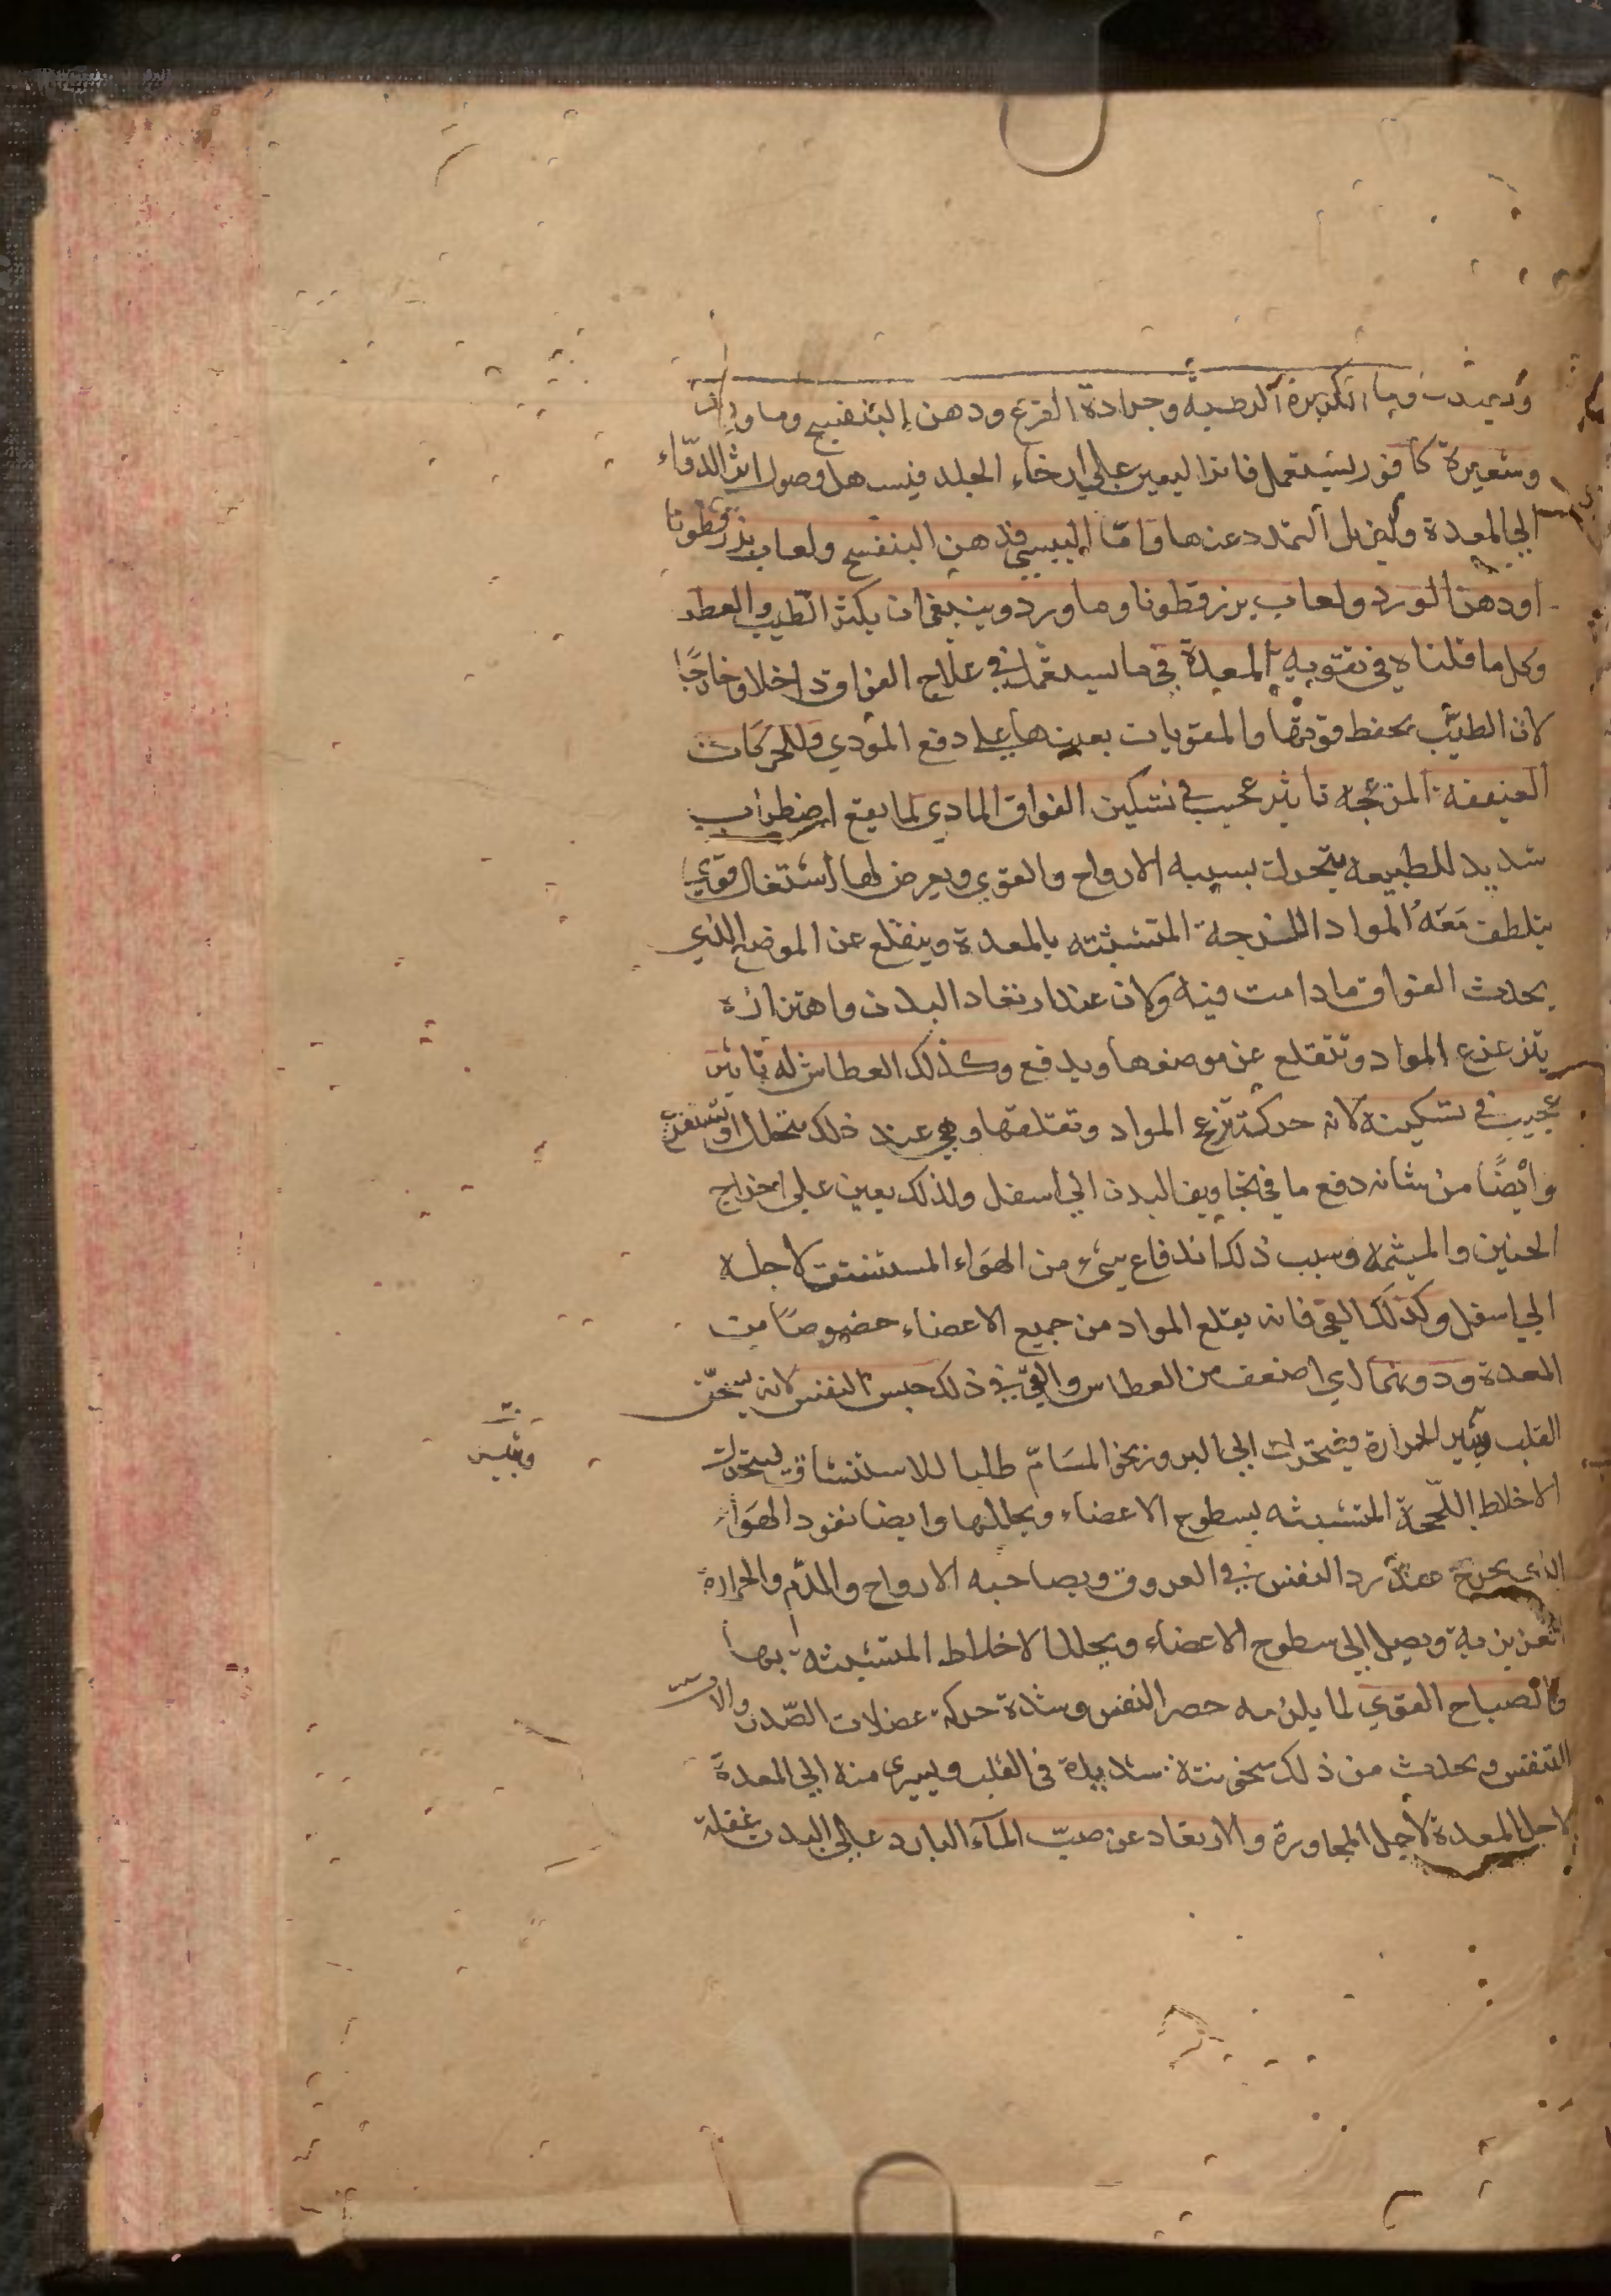 وماء الكزبرة الرطبه وجرادة القرع ودهن البنفسج وماورد
وشعيرة كافور ليستعمل فانذا ليعين علي ارخاء الجلد فيسهل وصول اثر الدوّاء
الي المعدة ويزيل التمدد عنها وامّا اليبسي فدهن البنفسج ولعاب بزرقطونا
اودهن الورد ولعاب بزرقطونا وماورد وينبغي ان يكثر الطيب والعطر
وكل ما قلناه في تقويه المعدة في ما يستعمل في علاج الفواق داخلا وخارجًا
لان الطيب يحفظ قوتها والمقويات بعينها علي دفع المؤدي وللحركات
العنيفه المزعجه تاثير عجيب في تسكين الفواق المادي لما يقع اضطراب
شديد للطبيعه يتحرك بسببه الارواح والقوي ويعرض لها اشتغال قوي
يتلطف مَعَهُ المواد اللزجه المتشبثه بالمعدة وينقلع عن الموضع الذي
يحدث الفواق مادامت فيه ولان عند ارتعاد البدن واهتزازه
يتزعزع المواد وتنقلع عن موضعها ويدفع وكذلك العطاش له تاثير
عجيب في تسكينه لانه حركة تزعزع المواد وتقلقها وهي عند ذلك يتحلل او تستفرغ
وايضًا من شانه دفع ما في تجاويف البدن الي اسفل ولذلك يعين علي اخراج
الجنين والمشيمه وسبب ذلك اندفاع شيء من الهوَاء المستنشق لاجله
الي اسفل وكذلك القي فانه يقلع المواد من جميع الاعضاء خصوصًا من
المعدة ودونهما اي اضعف من العطاس والقي في ذلك حبس النفس لانه يسخّن
القلب ويثير الحرارة فيتحرك الي البروز نحو المسَامّ طلبا للاستنشاق فيتحرك
الاخلاط اللحجة المتشبثه بسطوح الاعضاء ويحللها وايضا نفود الهوَاء
الذي يخرج عند رد النفس في العروق ويصاحبه الارواح والدّم والحرارة
الغريزيه ويصل الي سطوح الاعضاء ويحلل الاخلاط المتشبثه بها
والصياح القوي لما يلزمه حصر النفس وشدة حركه عضلات الصّدر والات
التنفس ويحدث من ذلك سخونة شديدة في القلب ويسري منه الي المعدة
لاجل المعدة لاجل المجاورة والارتعاد عن صبّ المآء البارد علي البدن بغفلة